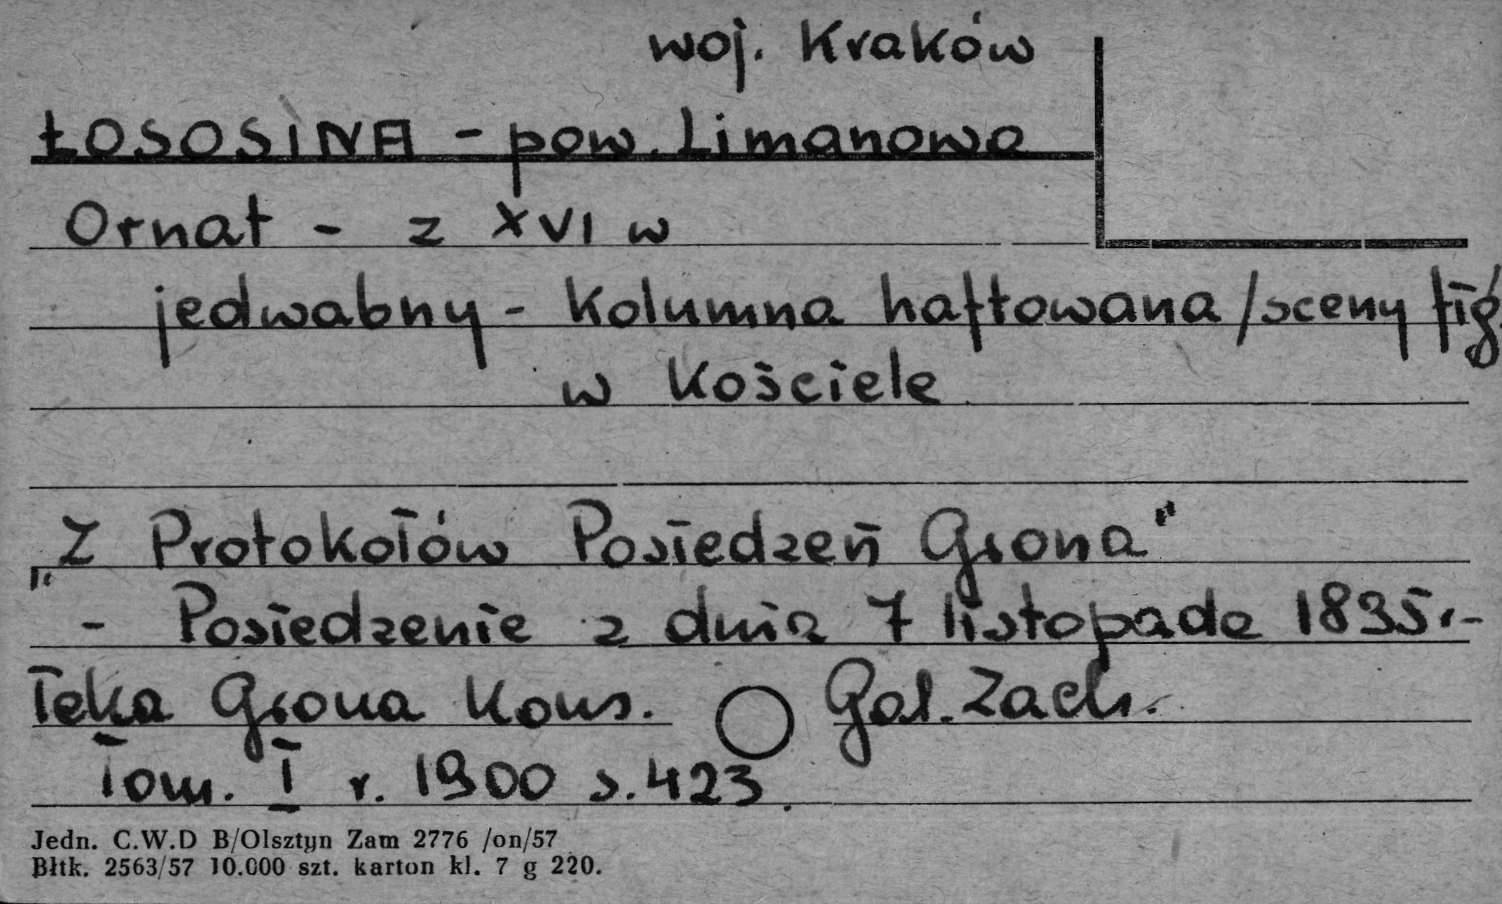 woj. Kraków
ŁOSOSINA - pow. Limanowa
Ornat - z XVI w
jedwabny - kolumna haftowana /sceny fig.
w kościele
„Z Protokołów Posiedzeń Grona"
- Posiedzenie z dnia 7 listopada 1895 r.-
Teka Grona Kons. Gal. Zach.
Tom. I r. 1900 s. 423
Jedn. C.W.D B/Olsztyn Zam 2776 /on/57
Błtk. 2563/57 10.000 szt. karton kl. 7 g 220.